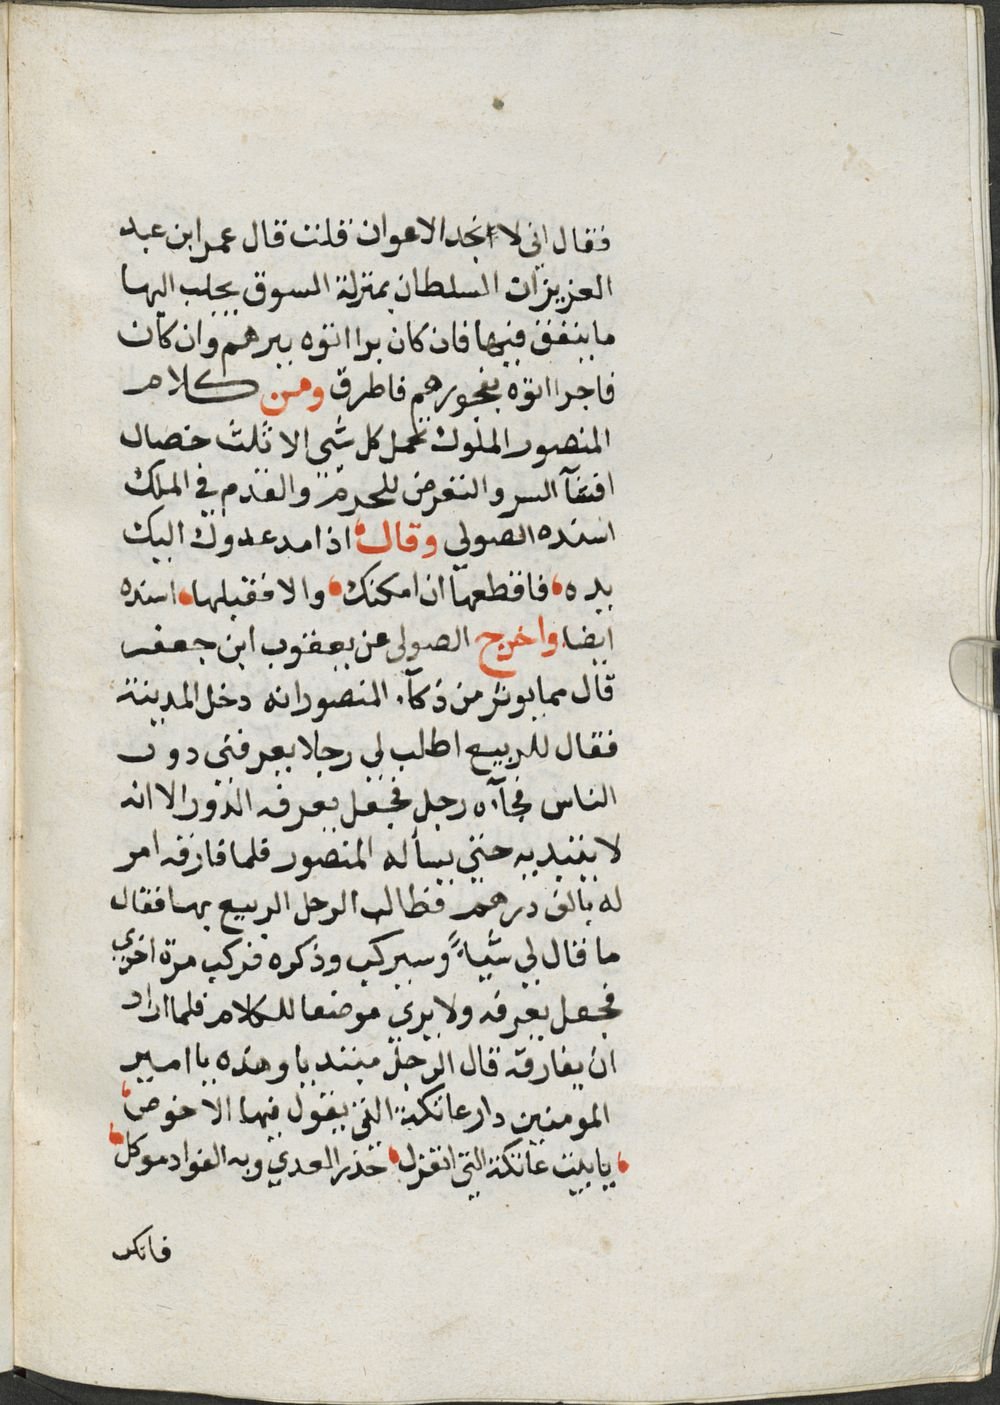 فقال اني لا اجد الاعوان قلت قال عمر ابن عبد
العزيز ان السلطان بمنزلة السوق يجلب اليها
ما ينفق فيها فان كان برا اتوه ببرهم وان كان
فاجرا اتوه بفجورهم فاطرق ومن كلام
المنصور الملوك تحمل كل شي الا ثلث خصال
افشآ السر والتعرض للحرم والقدح في الملك
اسنده الصولي وقال اذا مد عدوك اليك
يده فاقطعها ان امكنك والا فقبلها اسنده
ايضا واخرج الصولي عن يعقوب ابن جعفر
قال مما يوثر من ذكآء المنصور انه دخل المدينة
فقال للربيع اطلب لي رجلا يعرفني دور
الناس فجآءه رجل فجعل يعرفه الدور الا انه
لا يبتدي به حتي يسأله المنصور فلما فارقه امر
له بالف درهم فطالب الرجل الربيع بها فقال
ما قال لي شيأ وسيركب وذكره فركب مرة اخري
فجعل يعرفه ولا يري موضعا للكلام فلما اراد
ان يفارقه قال الرجل مبتديا وهذه يا امير
المومنين دار عاتكة التي يقول فيها الاخوص
يا بيت عاتكة التي اتغزل حذر العدي وبه الفواد موكل
فانكر